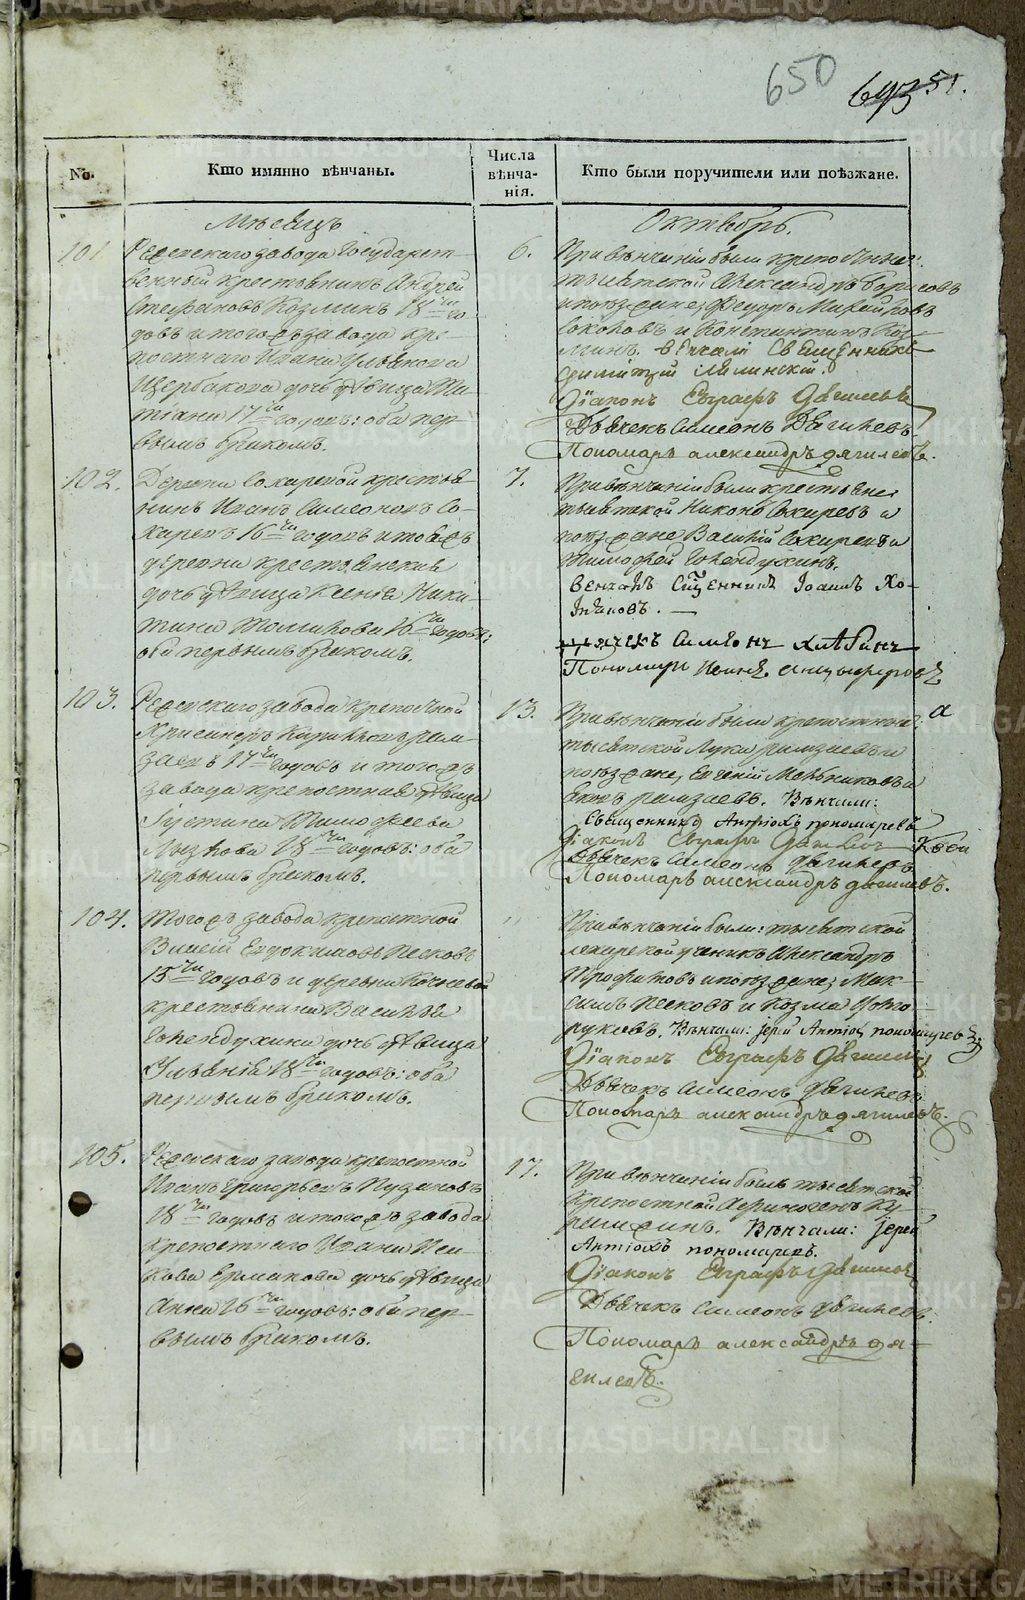 650
51.
No.
Кто имянно вѣнчаны.
Числа
вѣнча-
нія.
Кто были поручители или поѣзжане.
Мѣсяцъ
Октябрь.
101
Режевскаго завода Государст-
венный крестьянинъ Андрей
Стефановъ Козминъ 18ти го-
довъ и тогожъ завода кре-
постнаго Ивана Ульянова
Щербакова дочь девица Та-
тіана 17ти годовъ: оба пер-
вымъ бракомъ.
6.
При вѣнчаніи были крепостные:
тысятской Александръ Борисовъ
и поѣзжане, Федоръ
Соколовъ и Константинъ Коз-
минъ. вѣнчали Священникъ
Димитрій
Діаконъ Евграфъ Дягилевъ
Дьячекъ Симеонъ Дягилевъ
Пономарь александръ дягилевъ.
102.
Деревни Сохаревой крестья-
нинъ Иванъ Симеоновъ Со-
харевъ 16ти годовъ и тояжъ
деревни крестьянская
дочь девица Ксенія Ники-
тина 16ти годовъ:
оба первымъ бракомъ.
7.
При вѣнчаніи были крестьяне:
тысятской Никонъ Сохаревъ и
поѣзжане Василій Сохаревъ и
Тимофей Гогендухинъ.
Венчалъ Сщенникъ Іоаннъ Хо-
.
дьячекъ Симеонъ Хлѣбинъ
Пономарь
103.
Режевскаго завода крепостной
17ти годовъ и тогожъ
завода крепостная девица
Іустина Тимофеева
18ти годовъ: оба
первымъ бракомъ.
13.
При вѣнчаніи были крепостные:
тысятской Лука и
поѣзжане, Евгеній Мельниковъ и
. Вѣнчали:
Священникъ Антіохъ пономаревъ
Діаконъ Евграфъ Дягилевъ
Дьячекъ Симеонъ Дягилевъ
Пономарь александръ дягилевъ.
104.
Тогожъ завода крепостной
Василій Евдокимовъ Песковъ
годовъ и деревни Кочневой
крестьянина Василья
Гогендухина дочь девица
Ульянія 18ти годовъ: оба
первымъ бракомъ.
"
При вѣнчаніи были: тысятской
лекарской ученикъ Александръ
Трофимовъ и поѣзжане, Мак-
симъ Песковъ и Козма
. Вѣнчали: Іерей Антіохъ пономаревъ
Діаконъ Евграфъ Дягилевъ
Дьячекъ Симеонъ Дягилевъ
Пономарь александръ дягилевъ.
105.
Режевскаго завода крепостной
Иванъ Григорьевъ Пузановъ
18ти годовъ и тогожъ завода
крепостнаго Ивана Иса-
кова Ермакова дочь девица
Анна 16ти годовъ: оба пер-
вымъ бракомъ.
17.
При вѣнчаніи былъ тысятской
крепостной Ку-
. Вѣнчали: Іерей
Антіохъ пономаревъ.
Діаконъ Евграфъ Дягилевъ
Дьячекъ Симеонъ Дягилевъ.
Пономарь александръ дя-
гилевъ.
METRIKI.GASO-URAL.RU